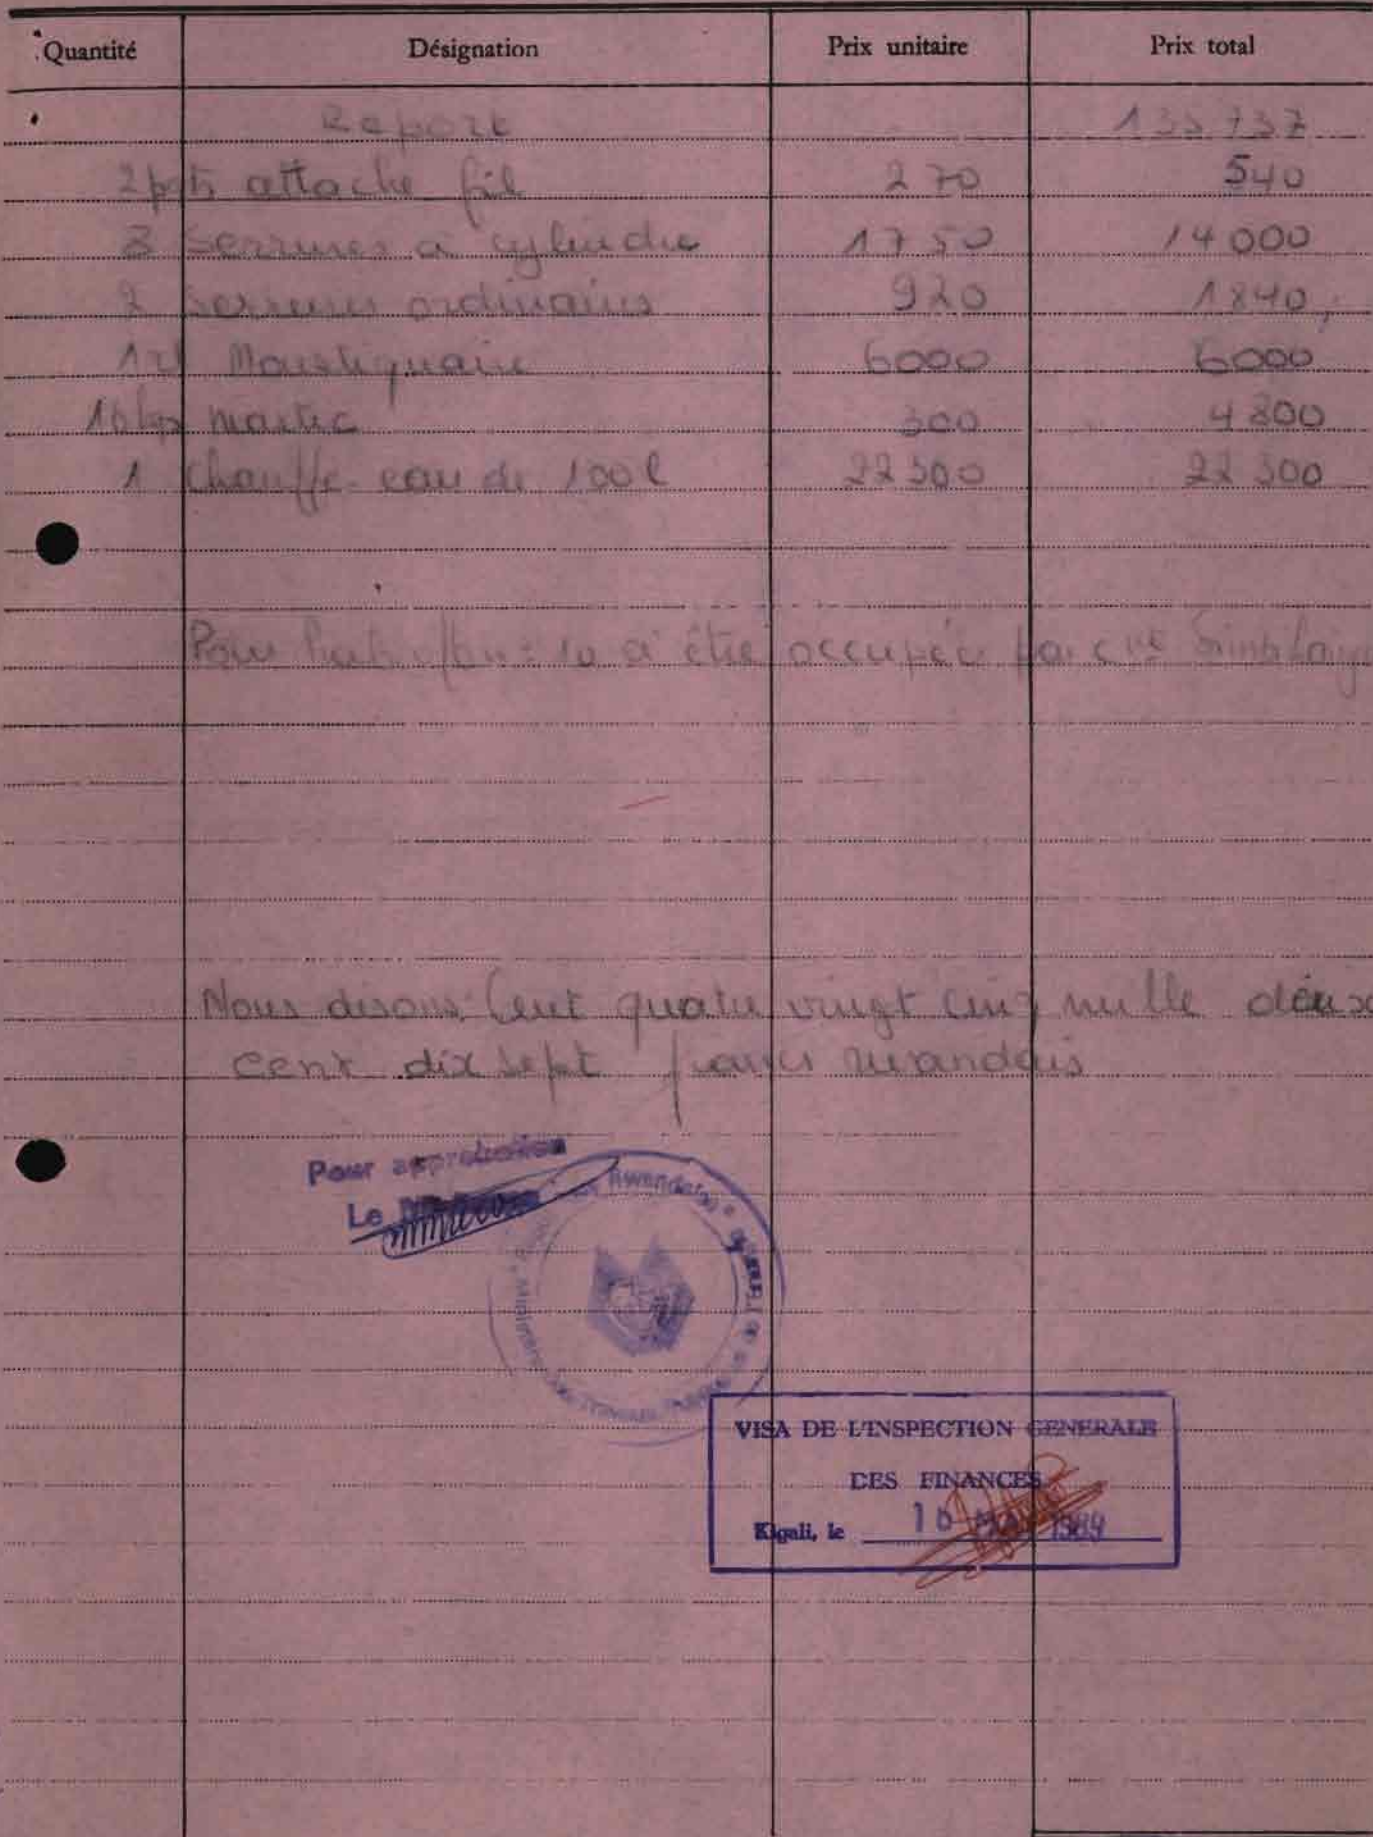 Quantité Désignation Prix unitaire Prix total
Report 135 737
2 pqts attache fil 270 540
8 serrures à cylindre 1750 14 000
2 serrures ordinaires 920 1840,
1 rl Moustiquaire 6000 6000
16 kgs mastic 300 4 800
1 Chauffe-eau de 100 l 22 300 22 300
Pour à être occupée par
Nous disons: Cent quatre vingt cinq mille deux
cent dix sept francs rwandais
Pour approbation
Le
VISA DE L'INSPECTION GENERALE
DES FINANCES
Kigali, le 16 1989